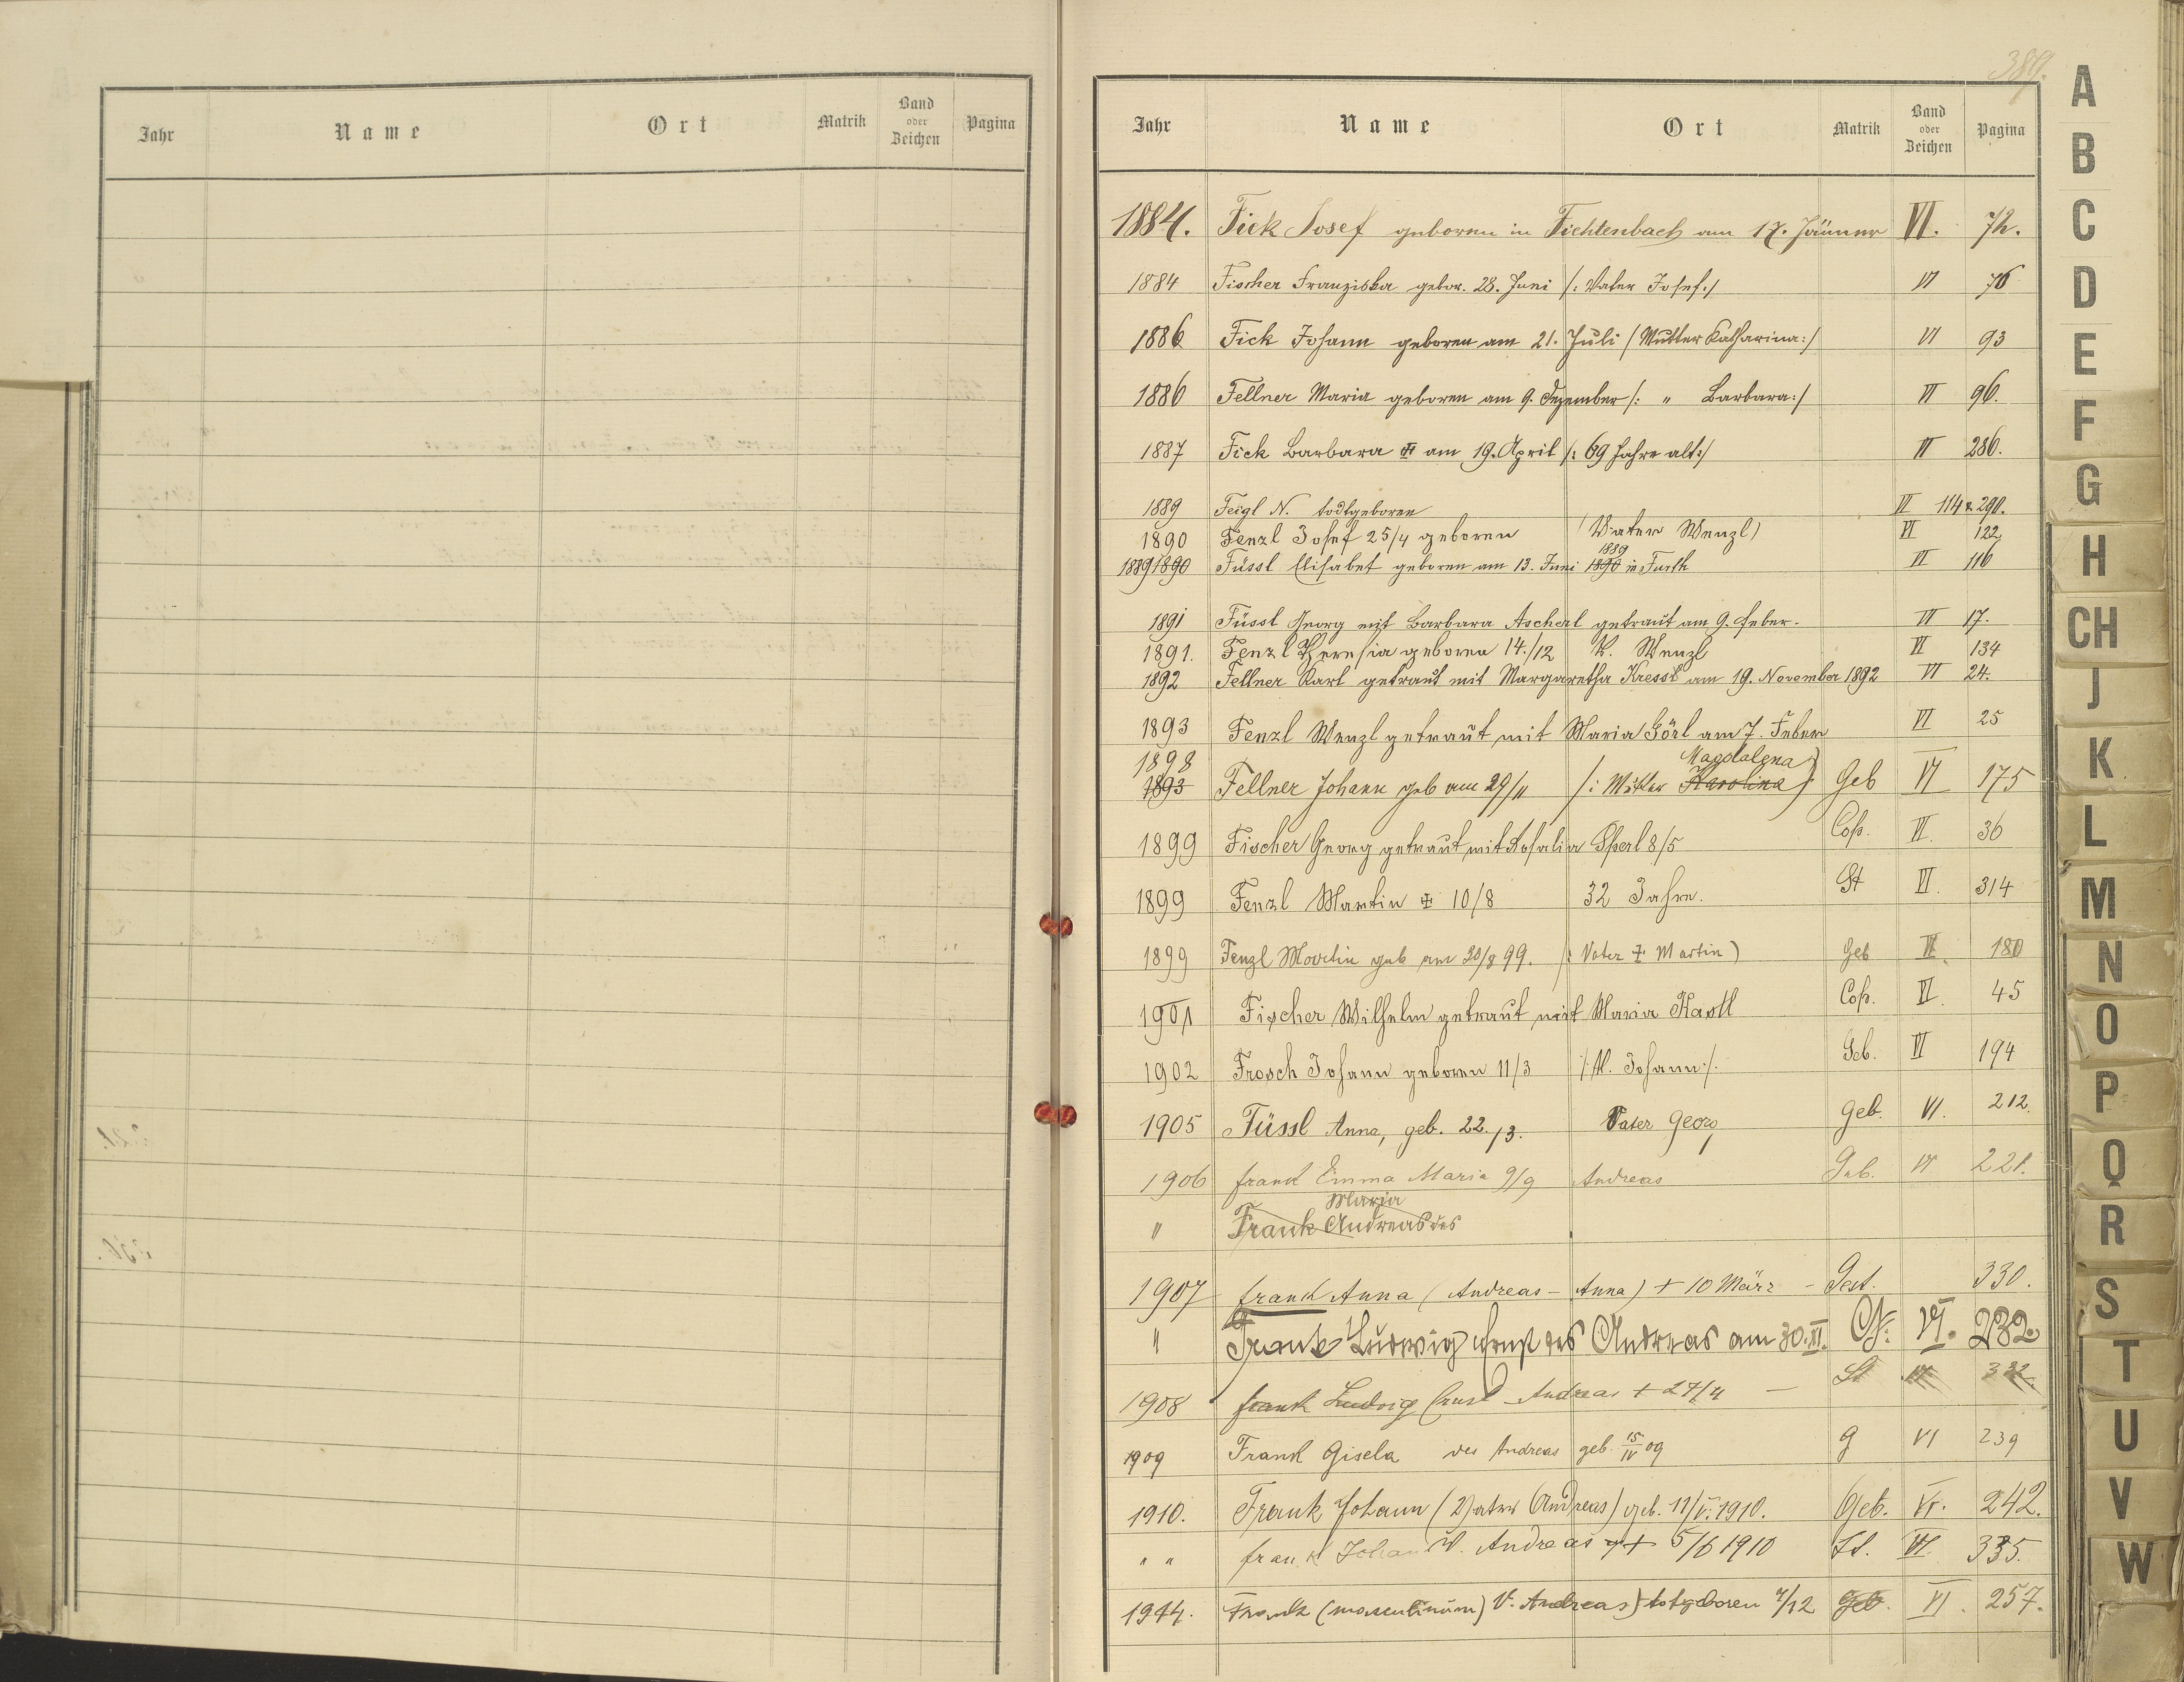 Jahr Name Ort Matrik Band oder Zeichen Pagina
389.
Jahr Name Ort Matrik Band oder Zeichen Pagina
1884. Fick Josef geboren in Fichtenbach am 17. Jänner VI. 72.
1884 Fischer Franziska gebor. 28. Juni /: Vater Josef :/ VI 76
1886 Fick Johann geboren am 21. Juli / Mutter Katharina :/ VI 93
1886 Fellner Maria geboren am 9. Dezember /: " Barbara :/ VI 96.
1887 Fick Barbara ‡ am 19. April /: 69 Jahre alt :/ VI 286.
1889 Feigl N. todtgeboren VI 114 & 290.
1890 Fenzl Josef 25/4 geboren (Vater Wenzl) VI 122
1889
1889 1890 Füssl Elisabet geboren am 13. Juni 1890 in Furth VI 116
1891 Füssl Georg mit Barbara Ascherl getraut am 9. Feber. VI 17.
1891. Fenzl Theresia geboren 14./12 V. Wenzl VI 134
1892 Fellner Karl getraut mit Margaretha Kressl am 19. November 1892 VI 24.
1893 Fenzl Wenzl getraut mit Maria Görl am 7. Feber VI 25
1898 Magdalena
1893 Fellner Johann geb am 29/11 /: Mutter Karolina) Geb VI 175
1899 Fischer Georg getraut mit Rosalia Sperl 8/5 Cop. VI. 36
1899 Fenzl Martin ‡ 10/8 32 Jahre. St VI. 314
1899 Fenzl Martin geb am 20/8 99. /: Vater ‡ Martin) Geb VI. 180
1901 Fischer Wilhelm getraut mit Maria Kastl Cop. VI. 45
1902 Frosch Johann geboren 11/3 /: V. Johann :/. Geb. VI 194
1905 Füssl Anna, geb. 22./3. Vater Georg Geb. VI. 212.
1906 Frank Emma Maria 9/9 Andreas Geb. VI 221.
Maria
" Frank Andreas des
1907 Frank Anna (Andreas - Anna) + 10 März - Gest. 330.
" Frank Ludwig Ernst des Andreas am 30. XI. G. VI. 232.
1908 Frank Ludwig Ernst Andreas + 27/4 — St VI 332.
1909 Frank Gisela des Andreas geb. 15/IV 09 G VI 239
1910. Frank Johann (Vater Andreas) geb. 11/V. 1910. Geb. VI. 242.
" " Frank Johan V. Andreas + 5/6 1910 St. VI. 335.
1914. Frank (masculinum) V. Andreas) totgeboren 4/12 Geb. VI. 257.
A
B
C
D
E
F
G
H
CH
J
K
L
M
N
O
P
Q
R
S
T
U
V
W